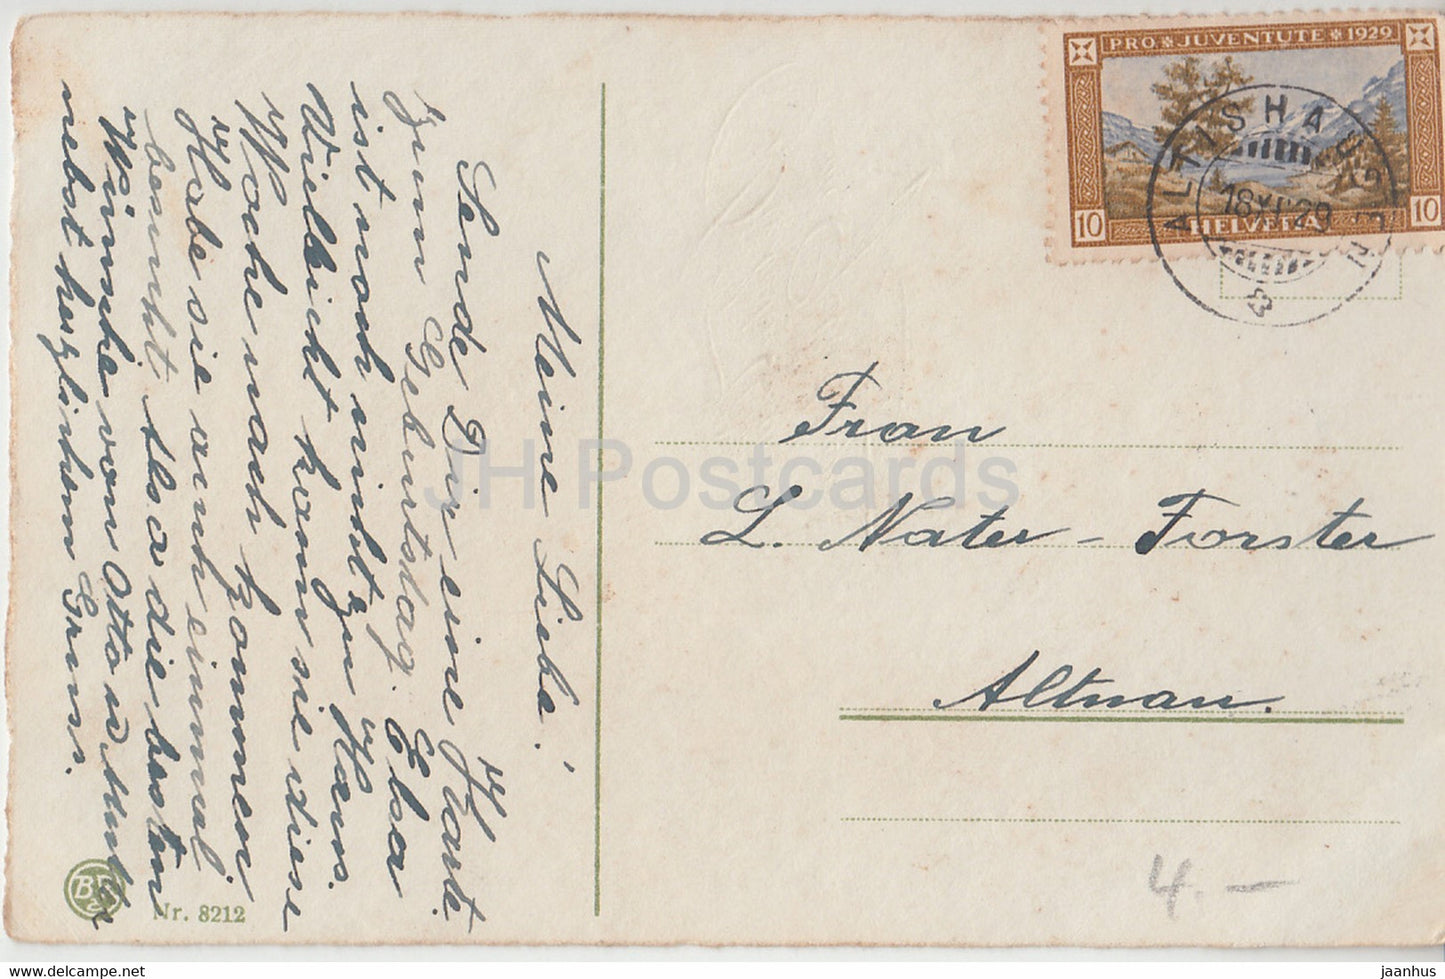 Meine Liebe!
Sende Dir eine Karte
zum Geburtstag. Elsa
ist noch nicht zu Haus.
Vielleicht kann sie diese
Woche nach kommen
Habe sie auch einmal
besucht. Also die besten
Wünsche von Otto u Mutter
nebst herzlichem Gruss.
BR
Nr. 8212
PRO JUVENTUTE 1929
10 HELVETIA 10
ALTISHAUSEN
18.XI.29
Frau
L. Nater - Forster
Altnau.
4.-
JH Postcards
jaanhus